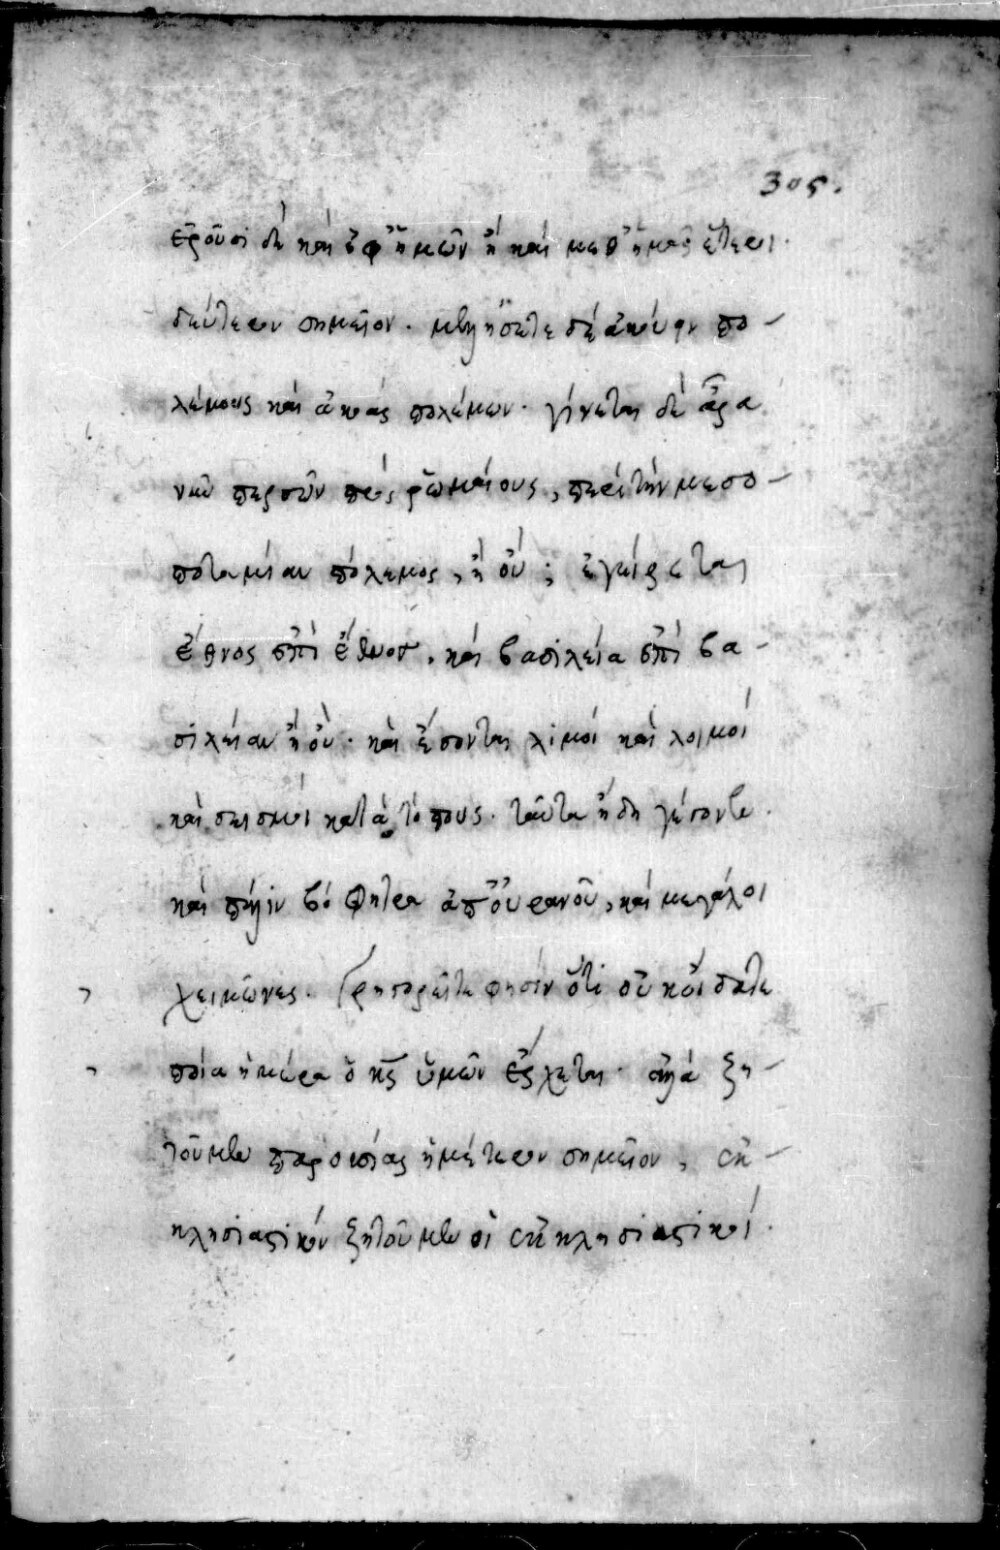 305.
ἐροῦσι δὲ καὶ ἐφ' ἡμῶν ἢ καὶ μεθ' ἡμᾶς ἕτεροι.
δεύτερον σημεῖον. μελλήσετε δὲ ἀκούειν πο-
λέμους καὶ ἀκοὰς πολέμων. γίνεται δὲ ἆρα
νῦν περσῶν πρὸς ῥωμαίους, περὶ τὴν μεσο-
ποταμίαν πόλεμος, ἢ οὔ; ἐγείρεται
ἔθνος ἐπὶ ἔθνος, καὶ βασιλεία ἐπὶ βα-
σιλείαν ἢ οὔ. καὶ ἔσονται λιμοὶ καὶ λοιμοὶ
καὶ σεισμοὶ κατὰ τόπους. ταῦτα ἤδη γέγονε.
καὶ πάλιν φόβητρα ἀπ' οὐρανοῦ, καὶ μεγάλοι
χειμῶνες. Γρηγορεῖτε φησὶν ὅτι οὐκ οἴδατε
ποία ἡμέρα ὁ κς ὑμῶν ἔρχεται. ἀλλὰ ζη-
τοῦμεν παρουσίας ἡμέτερον σημεῖον, ἐκ-
κλησιαστικὸν ζητοῦμεν οἱ ἐκκλησιαστικοί.